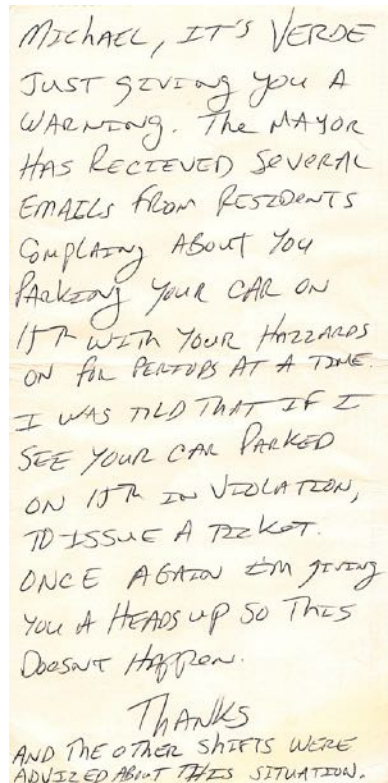 MICHAEL, IT'S VERDE
JUST GIVING YOU A
WARNING. The MAYOR
HAS RECIEVED SEVERAL
EMAILS FROM RESIDENTS
COMPLAING ABOUT YOU
PARKING YOUR CAR ON
15Th WITH YOUR HAZZARDS
ON FOR PERIODS AT A TIME.
I WAS TOLD THAT IF I
SEE YOUR CAR PARKED
ON 15Th IN VIOLATION,
TO ISSUE A TICKET.
ONCE AGAIN I'M GIVING
YOU A HEADS UP SO THIS
DOESNT HAPPEN.
THANKS
AND THE OTHER SHIFTS WERE
ADVIZED ABOUT THIS SITUATION.